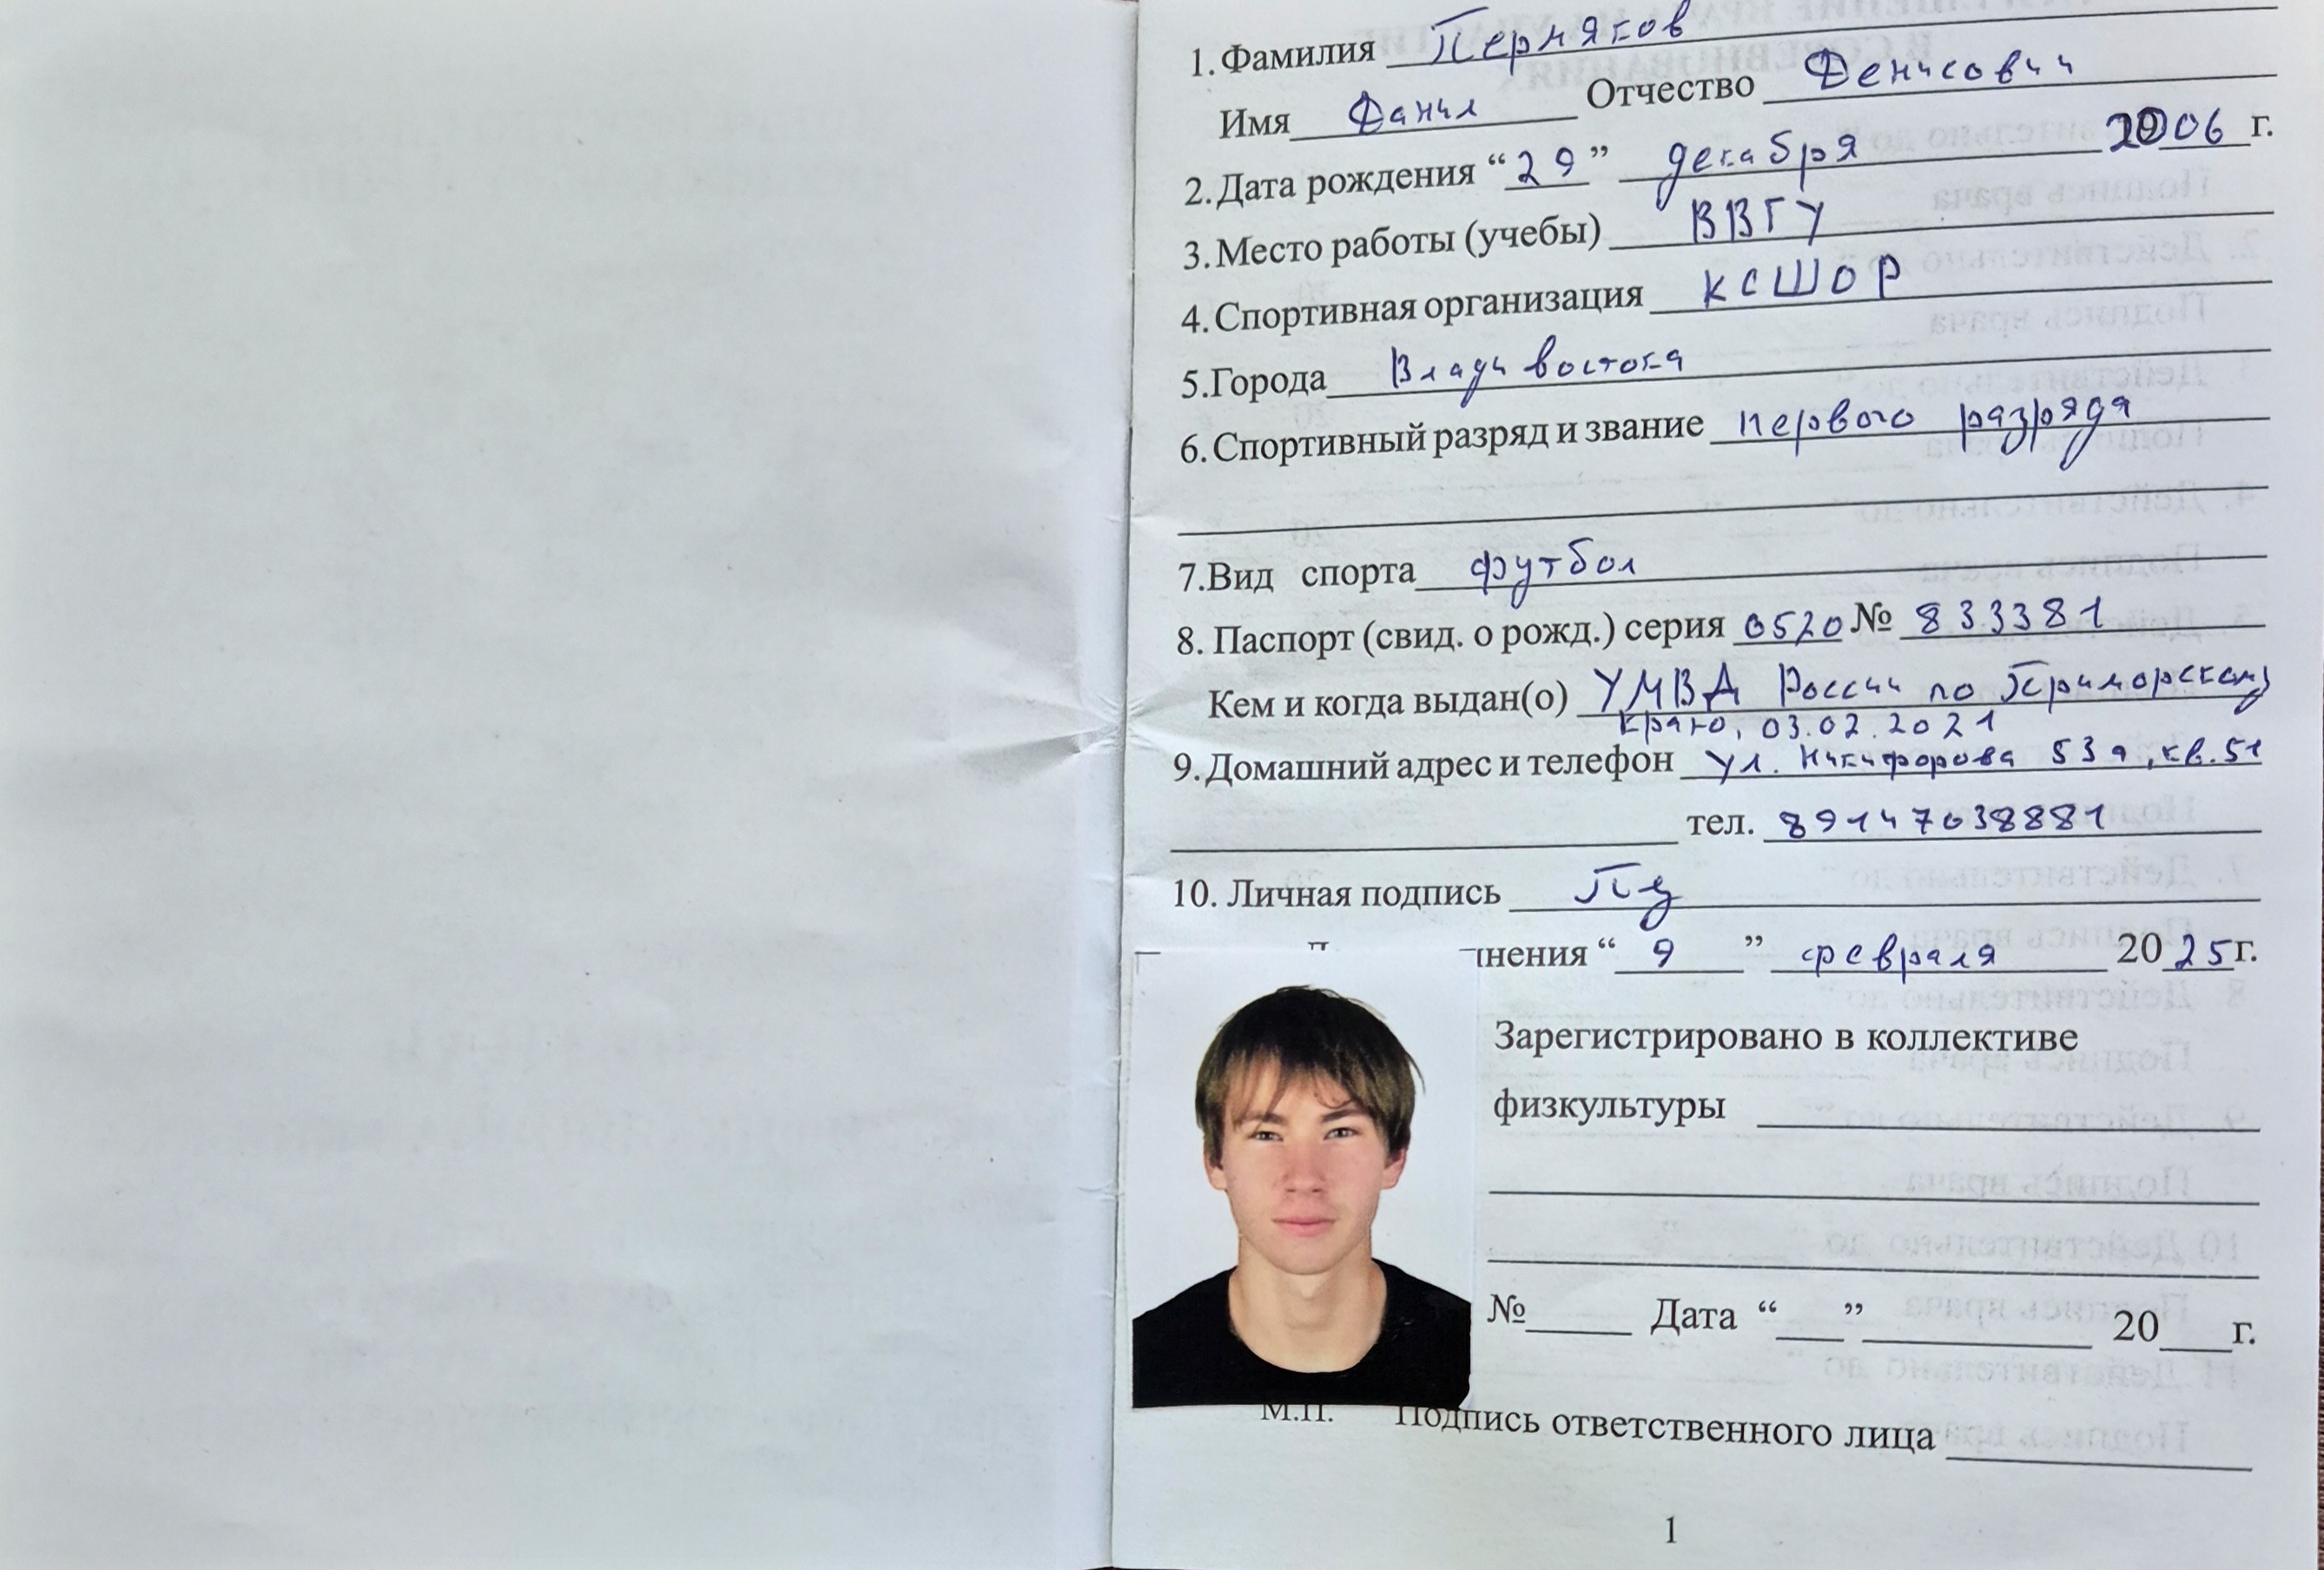 1. Фамилия Пермяков
Имя Данил Отчество Денисович
2. Дата рождения “29” декабря 2006 г.
3. Место работы (учебы) ВВГУ
4. Спортивная организация КСШОР
5.Города Владивостока
6. Спортивный разряд и звание первого разряда
7.Вид спорта футбол
8. Паспорт (свид. о рожд.) серия 0520 № 833381
Кем и когда выдан(о) УМВД России по Приморскому
краю, 03.02.2021
9. Домашний адрес и телефон ул. Никифорова 53а, кв. 51
тел. 89147038881
10. Личная подпись
нения “9” февраля 2025г.
Зарегистрировано в коллективе
физкультуры
№ Дата “ ” 20 г.
М.П. Подпись ответственного лица
1